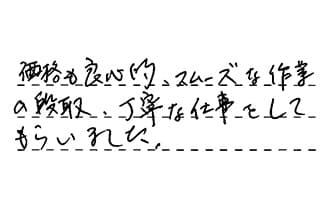 価格も良心的、スムーズな作業
の段取、丁寧な仕事をして
もらいました。